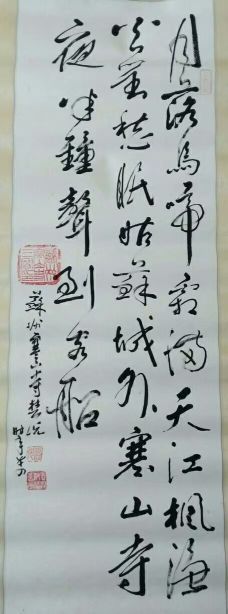 月落烏啼霜滿天江楓漁
火對愁眠姑蘇城外寒山寺
夜半鐘聲到客船
蘇州寒山寺